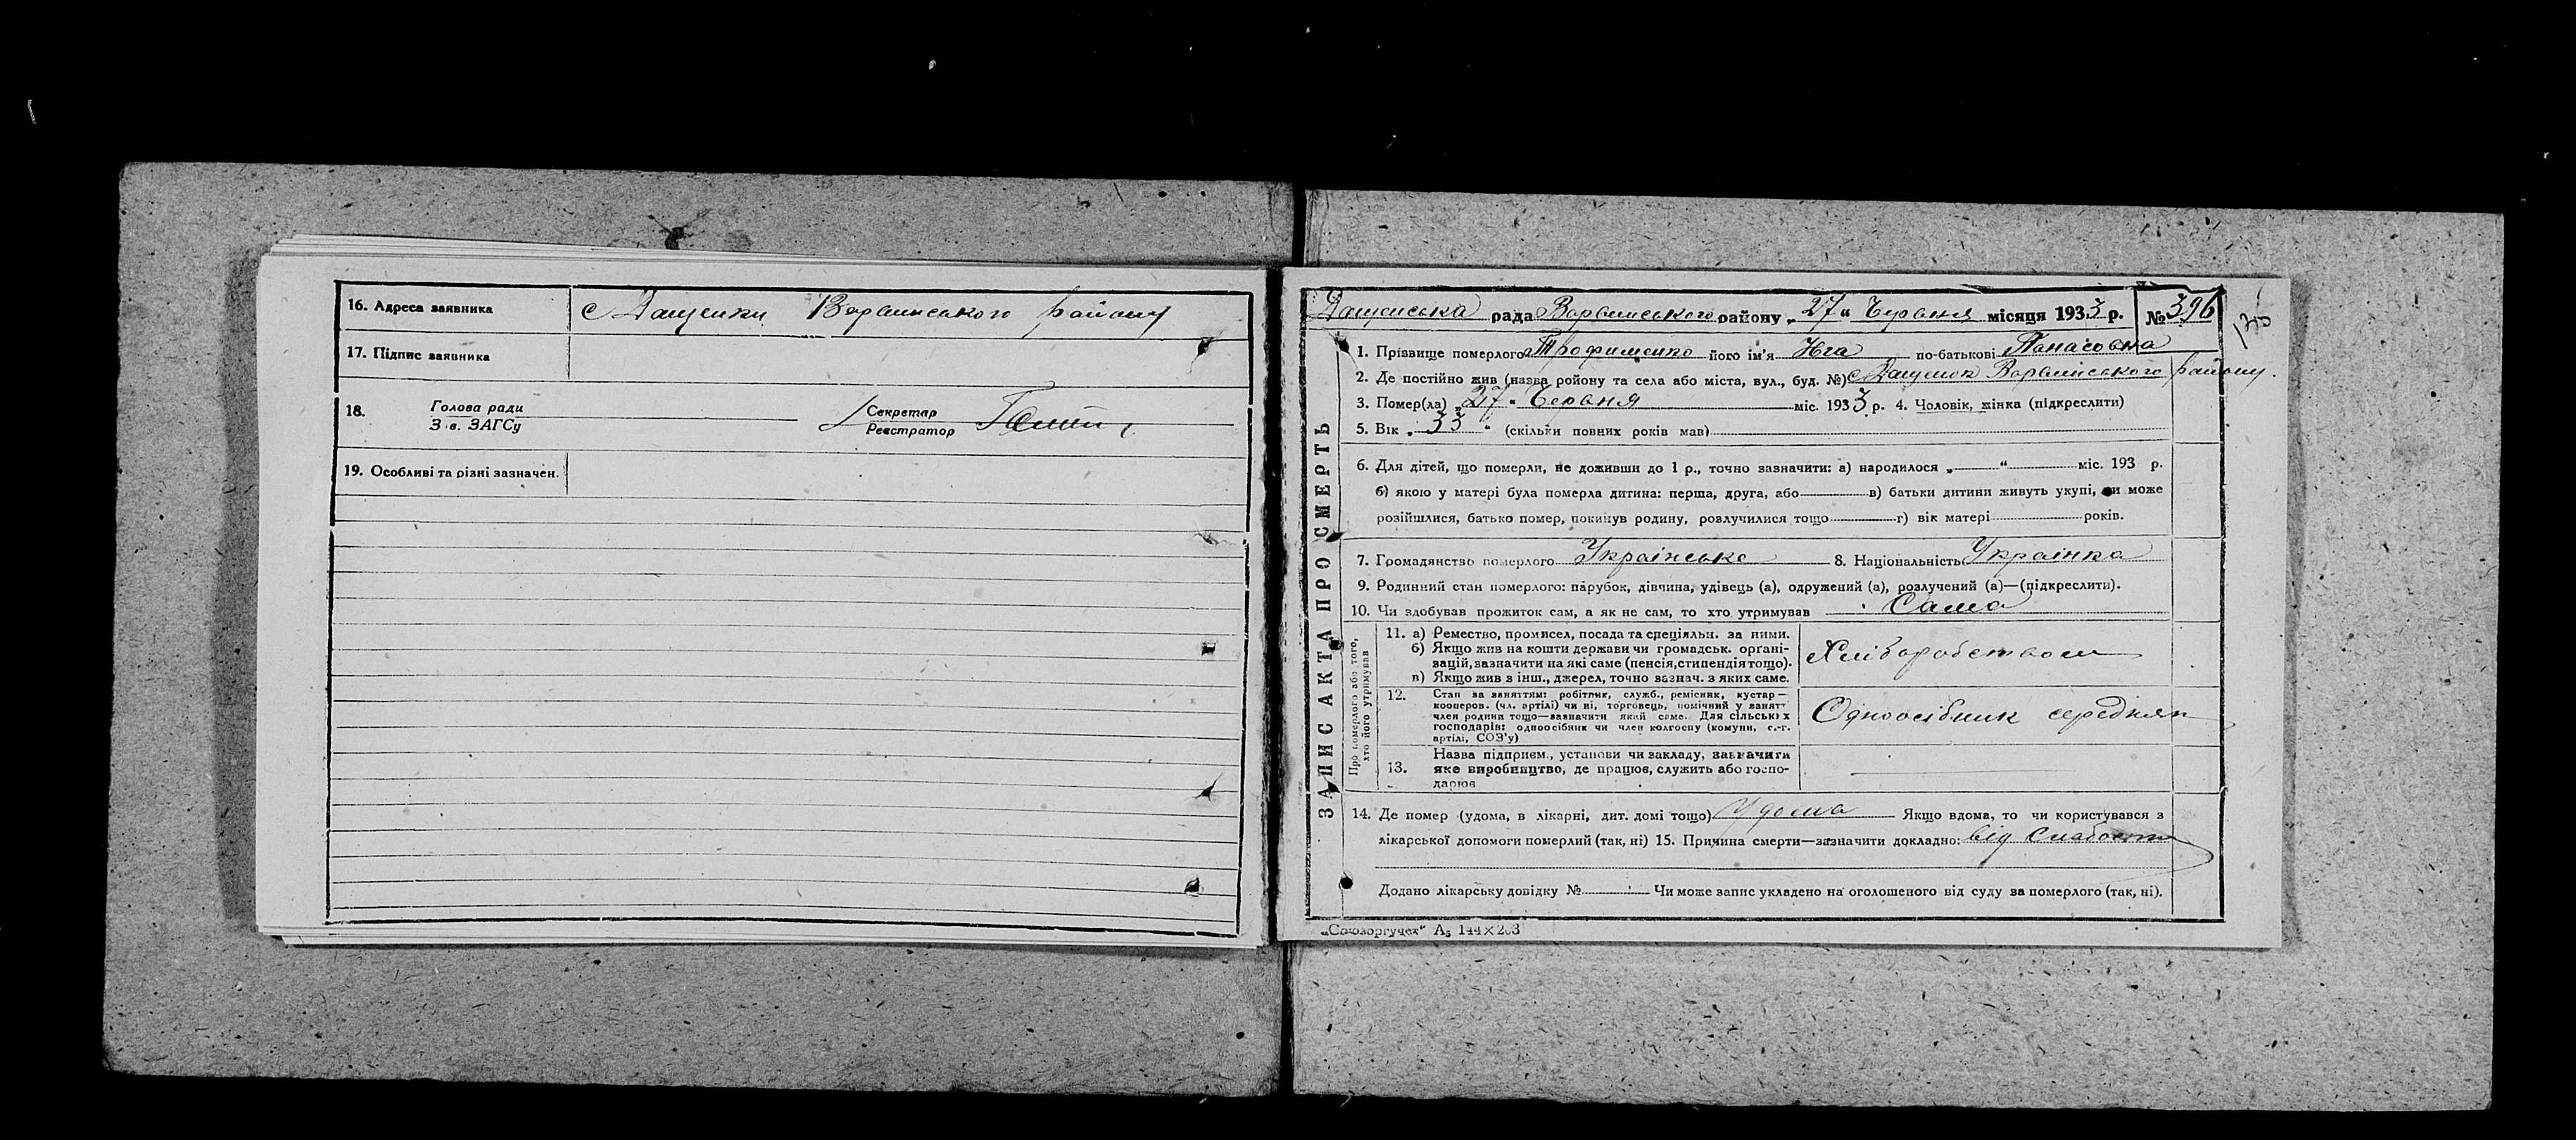 16. Адреса заявника с Дащенки Варвинського району
17. Підпис заявника
18. Голова ради
З в. ЗАГСу
Секретар
Реєстратор
19. Особливі та різні зазначен.
Дащенська рада Варвинського району „27“ Червня місяця 1933 р. № 396
1. Прізвище померлого Трофименко його ім'я Юга по-батькові Панасовна
2. Де постійно жив (назва ройону та села або міста, вул., буд. №) с Дащенок Варвинського району.
3. Помер(ла) „27“ Червня міс. 1933 р. 4. Чоловік, жінка (підкреслити)
5. Вік „33“ (скільки повних років мав)
6. Для дітей, що померли, не доживши до 1 р., точно зазначити: а) народилося „ “ міс. 193 р.
б) якою у матері була померла дитина: перша, друга, або в) батьки дитини живуть укупі, чи може
розійшлися, батько помер, покинув родину, розлучилися тощо г) вік матері років.
7. Громадянство померлого Українське 8. Національність Українка
9. Родинний стан померлого: парубок, дівчина, удівець (а), одружений (а), розлучений (а)—(підкреслити).
10. Чи здобував прожиток сам, а як не сам, то хто утримував Сама
ЗАПИС АКТА ПРО СМЕРТЬ
Про померлого або того,
хто його утримував
11. а) Ремество, промисел, посада та спеціяльн. за ними.
б) Якщо жив на кошти держави чи громадськ. органі-
зацій, зазначити на які саме (пенсія, стипендія тощо).
в) Якщо жив з інш., джерел, точно зазнач. з яких саме.
Хліборобством
12. Стан за заняттям: робітник, служб., ремісник, кустар—
кооперов. (чл. артілі) чи ні, торговець, помічний у занятт
член родини тощо—зазначити який саме. Для сільських
господарів: одноосібник чи член колгоспу (комуни, с.-г.
артілі, СОЗ'у)
Одноосібник середняк
13. Назва підприєм., установи чи закладу, зазначити
яке виробництво, де працює, служить або госпо-
дарює
14. Де помер (удома, в лікарні, дит. домі тощо) Удома Якщо вдома, то чи користувався з
лікарської допомоги померлий (так, ні) 15. Причина смерти—зазначити докладно: від Слабости
Додано лікарську довідку № Чи може запис укладено на оголошеного від суду за померлого (так, ні).
„Союзоргучет“ А₅ 144×203